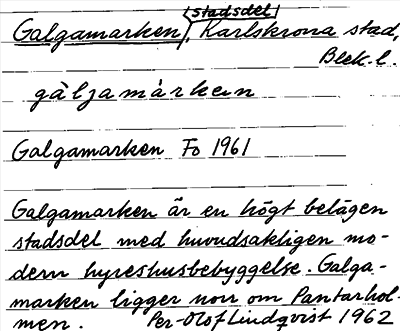 stadsdel
Galgamarken, Karlskrona stad,
Blek. l.
gàljamàrken
Galgamarken Fo 1961
Galgamarken är en högt belägen
stadsdel med huvudsakligen mo-
dern hyreshusbebyggelse. Galga-
marken ligger norr om Pantarhol-
men. Per-Olof Lindqvist 1962